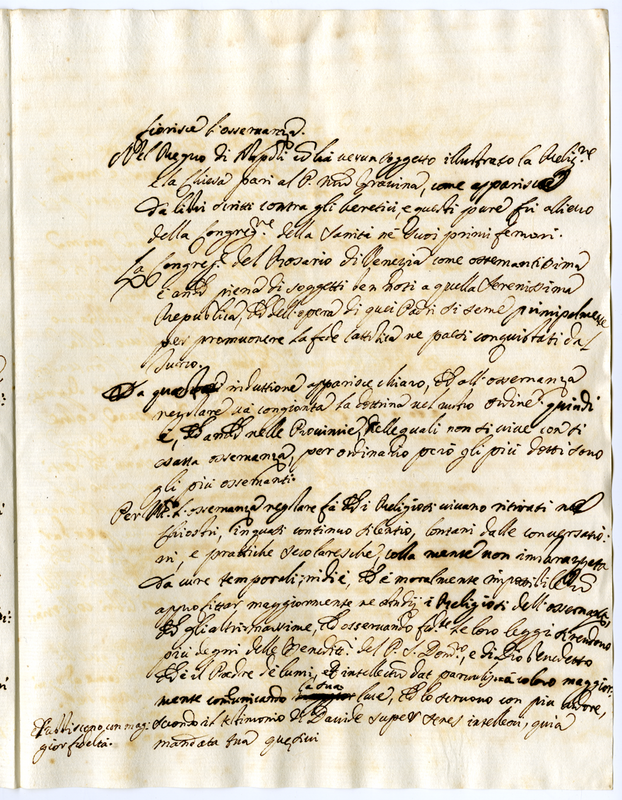 fiorisce l'osservanza.
Nel Regno di Napoli non ha verun soggetto illustrato la Relig.ne
e la Chiesa pari al P. Gravina, come apparisce
da libri scritti contra gli heretici, e questi pure fu allievo
della Congreg.ne della Sanità ne suoi primi fervori.
La Congreg.e del Rosario di Venezia come osservantissima
è piena di soggetti ben noti a quella Serenissima
Republica, dell'opera di quei Padri si serve principalmente
per promuovere la fede cattolica ne paesi conquistati dal
Turco.
Da induttione apparisce chiaro, che all'osservanza
regolare sia congionta la dottrina nel nostro ordine: quindi
è, che anche nelle Provincie, nelle quali non si vive con sì
esatta osservanza, per ordinario però gli più dotti sono
gli più osservanti.
Per l'osservanza regolare fa che i Religiosi vivano ritirati ne
chiostri, in quasi continuo silentio, lontani dalle conversatio:
ni, e prattiche secolaresche, colla mente non imbarazzata
da cure temporali; indi è, che è moralmente impossibile
approfittar maggiormente ne studij i Religiosi dell'osservanza
che gli altri: massime, che osservando le loro leggi si rendono
più degni delle Benedit.ni del P. S. Dom.co, e di Dio Benedetto
che è il Padre de lumi, et intellectum dat parvulis: à coloro maggior:
mente comunicando la sua luce, che lo servono con più amore,
e ubbidiscono con mag:
gior fedeltà.
secondo il testimonio di Davide super senes intellexi, quia
mandata tua quesivi